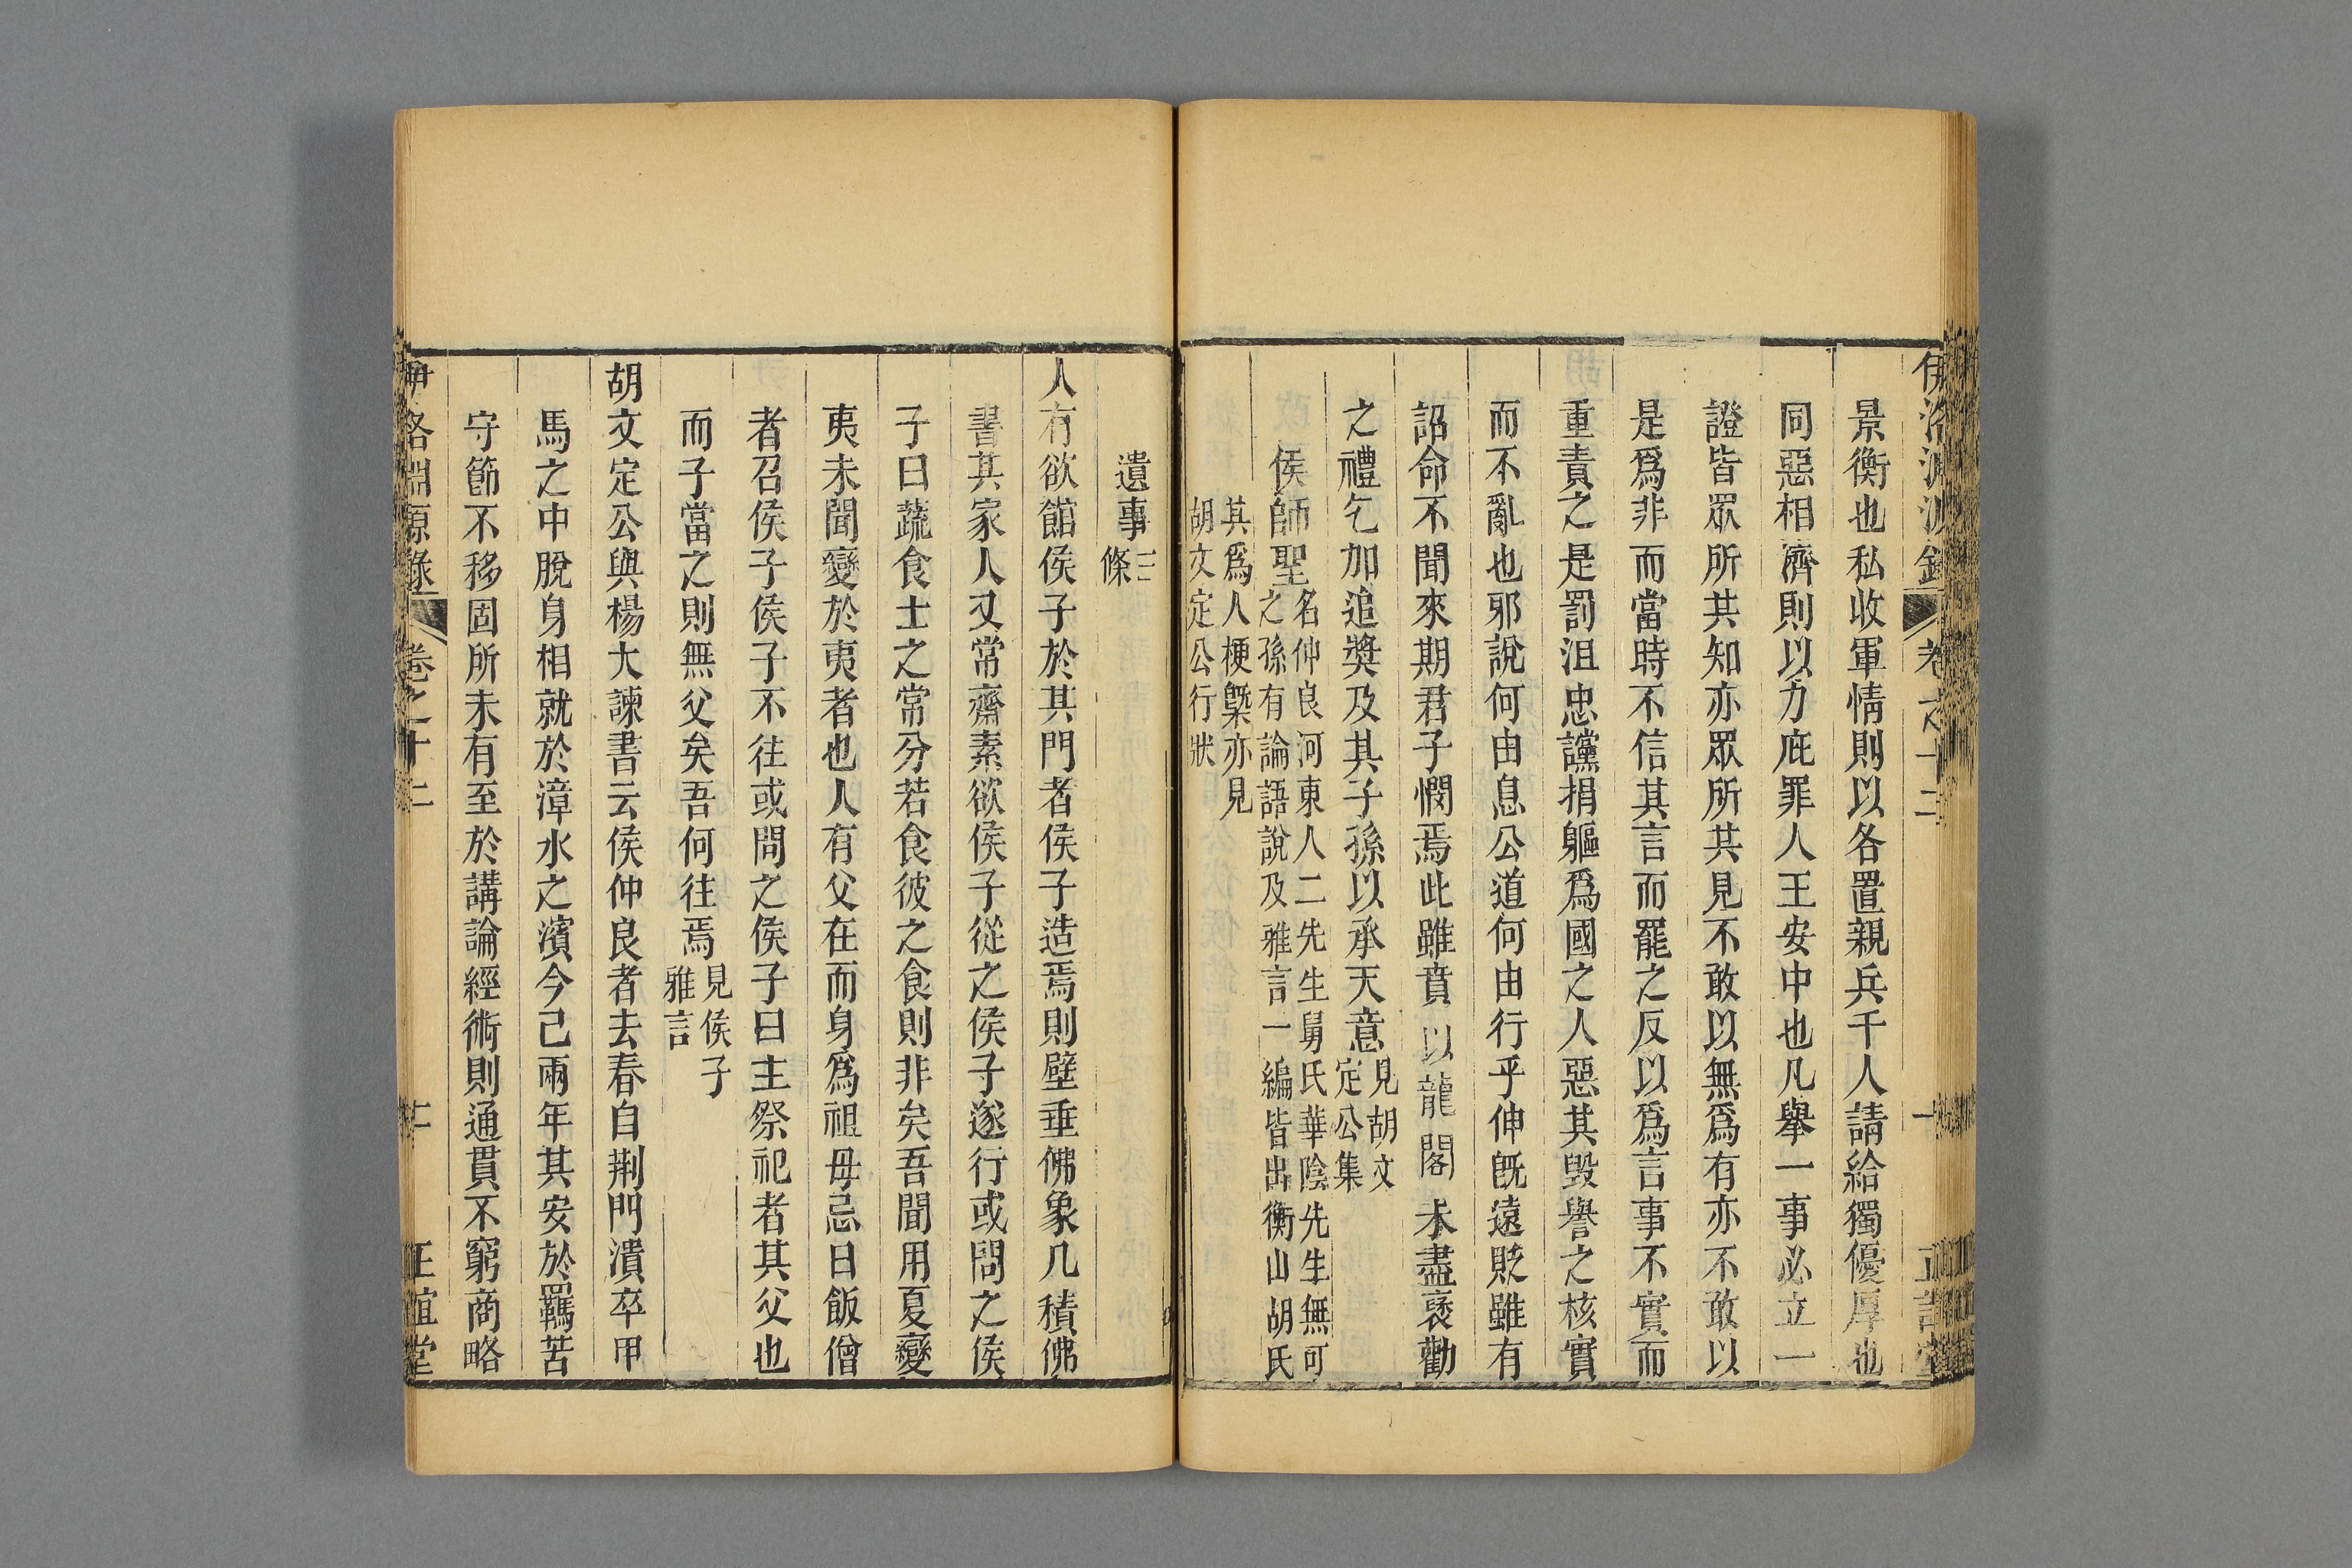 伊洛淵源錄 卷之十二 十 正誼堂
景衡也私收軍情則以各置親兵千人請給獨優厚也
同惡相濟則以力庇罪人王安中也凡舉一事必立一
證皆眾所共知亦眾所共見不敢以無爲有亦不敢以
是爲非而當時不信其言而罷之反以爲言事不實而
重責之是罰沮忠讜捐軀爲國之人惡其毀譽之核實
而不亂也邪說何由息公道何由行乎伸旣遠貶雖有
詔命不聞來期君子憫焉此雖賁以龍閣未盡褒勸
之禮乞加追獎及其子孫以承天意見胡文定公集
侯師聖名仲良河東人二先生舅氏華陰先生無可之孫有論語說及雅言一編皆出衡山胡氏
其爲人梗槩亦見胡文定公行狀
遺事三條
人有欲館侯子於其門者侯子造焉則壁垂佛象几積佛
書其家人又常齋素欲侯子從之侯子遂行或問之侯
子曰蔬食士之常分若食彼之食則非矣吾聞用夏變
夷未聞變於夷者也人有父在而身爲祖毋忌日飯僧
者召侯子侯子不往或問之侯子曰主祭祀者其父也
而子當之則無父矣吾何往焉見侯子雅言
胡文定公與楊大諫書云侯仲良者去春自荆門潰卒甲
馬之中脫身相就於漳水之濱今已兩年其安於羈苦
守節不移固所未有至於講論經術則通貫不窮商略
伊洛淵源錄 卷之十二 十一 正誼堂